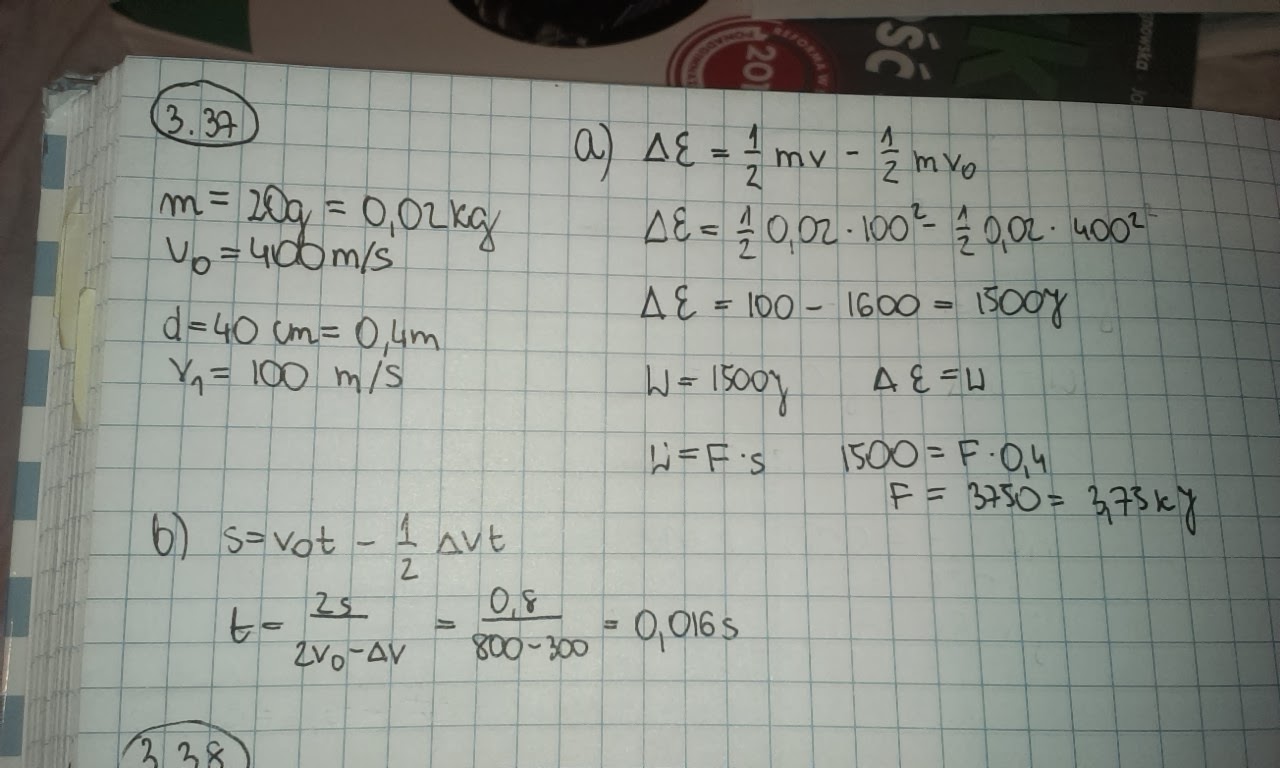 3.37
m = 20g = 0,02kg
v₀ = 400m/s
d = 40 cm = 0,4m
v₁ = 100 m/s
a) Δε = 1/2 mv - 1/2 mv₀
Δε = 1/2 0,02 · 100² - 1/2 0,02 · 400²
Δε = 100 - 1600 = 1500J
W = 1500J Δε = W
W = F · s 1500 = F · 0,4
F = 3750 = 3,75kJ
b) s = v₀t - 1/2 Δvt
t = 2s / 2v₀ - Δv = 0,8 / 800 - 300 = 0,016s
3.38
ŚĆ
201